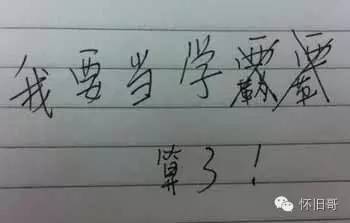 我要当学
算了！
怀旧哥